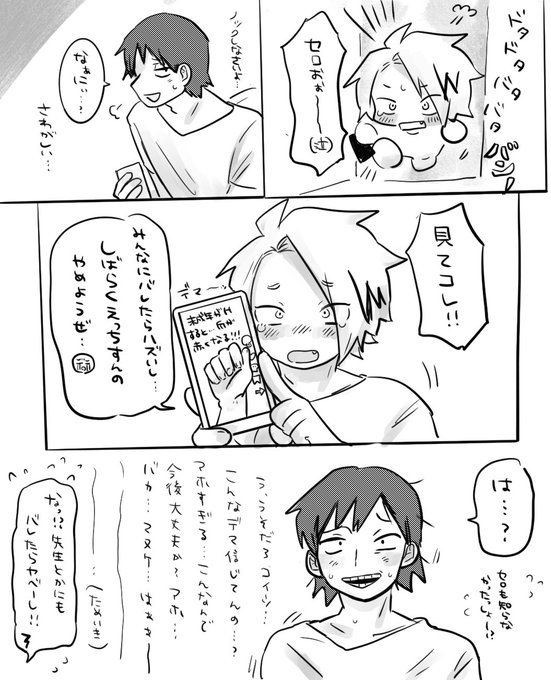 ドタ
ドタ
バタ
バタ
バン
セロおぉ〜〜
(泣)
ノックしなさいよ…
なぁに…
さわがしい…
見てコレ!!
デマ〜
未成年がH
すると…爪が
赤くなる!!!
みんなにバレたらハズいし…
しばらくえっちすんの
やめようぜ…
は…?
セロも知らな
かったっしょ〜!?
う、うそだろコイツ…
こんなデマ信じてんの…?
アホすぎる…こんなんで
今後大丈夫か?アホ…
バカ…マヌケ…はぁぁ〜
(ためいき)
なっ!?先生とかにも
バレたらヤベーし!!